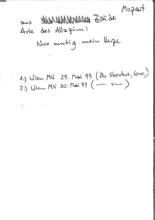 Mozart
aus Zaide
Arie des Allazim:
Nur mutig mein Herze
1.) Wien MV 29. Mai 99 (
2.) Wien MV 30. Mai 99 (— —)